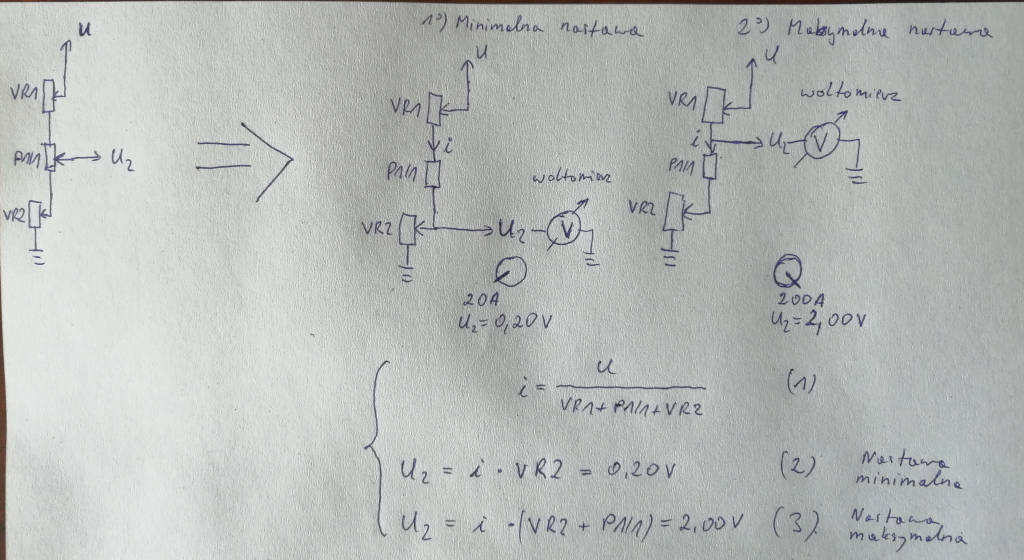 U
VR1
P1/1
U2
VR2
1°) Minimalna nastawa
U
VR1
i
P1/1
woltomierz
VR2
U2
V
20A
U2=0,20V
2°) Maksymalna nastawa
U
VR1
woltomierz
i
U2
V
P1/1
VR2
200A
U2=2,00V
i = U / VR1+P1/1+VR2 (1)
U2 = i · VR2 = 0,20V (2) Nastawa minimalna
U2 = i · (VR2 + P1/1) = 2,00V (3) Nastawa maksymalna